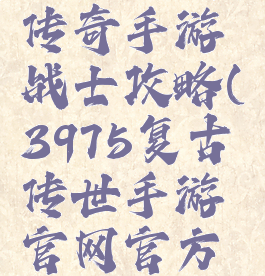 传奇手游
战士攻略(
3975复古
传世手游
官网官方